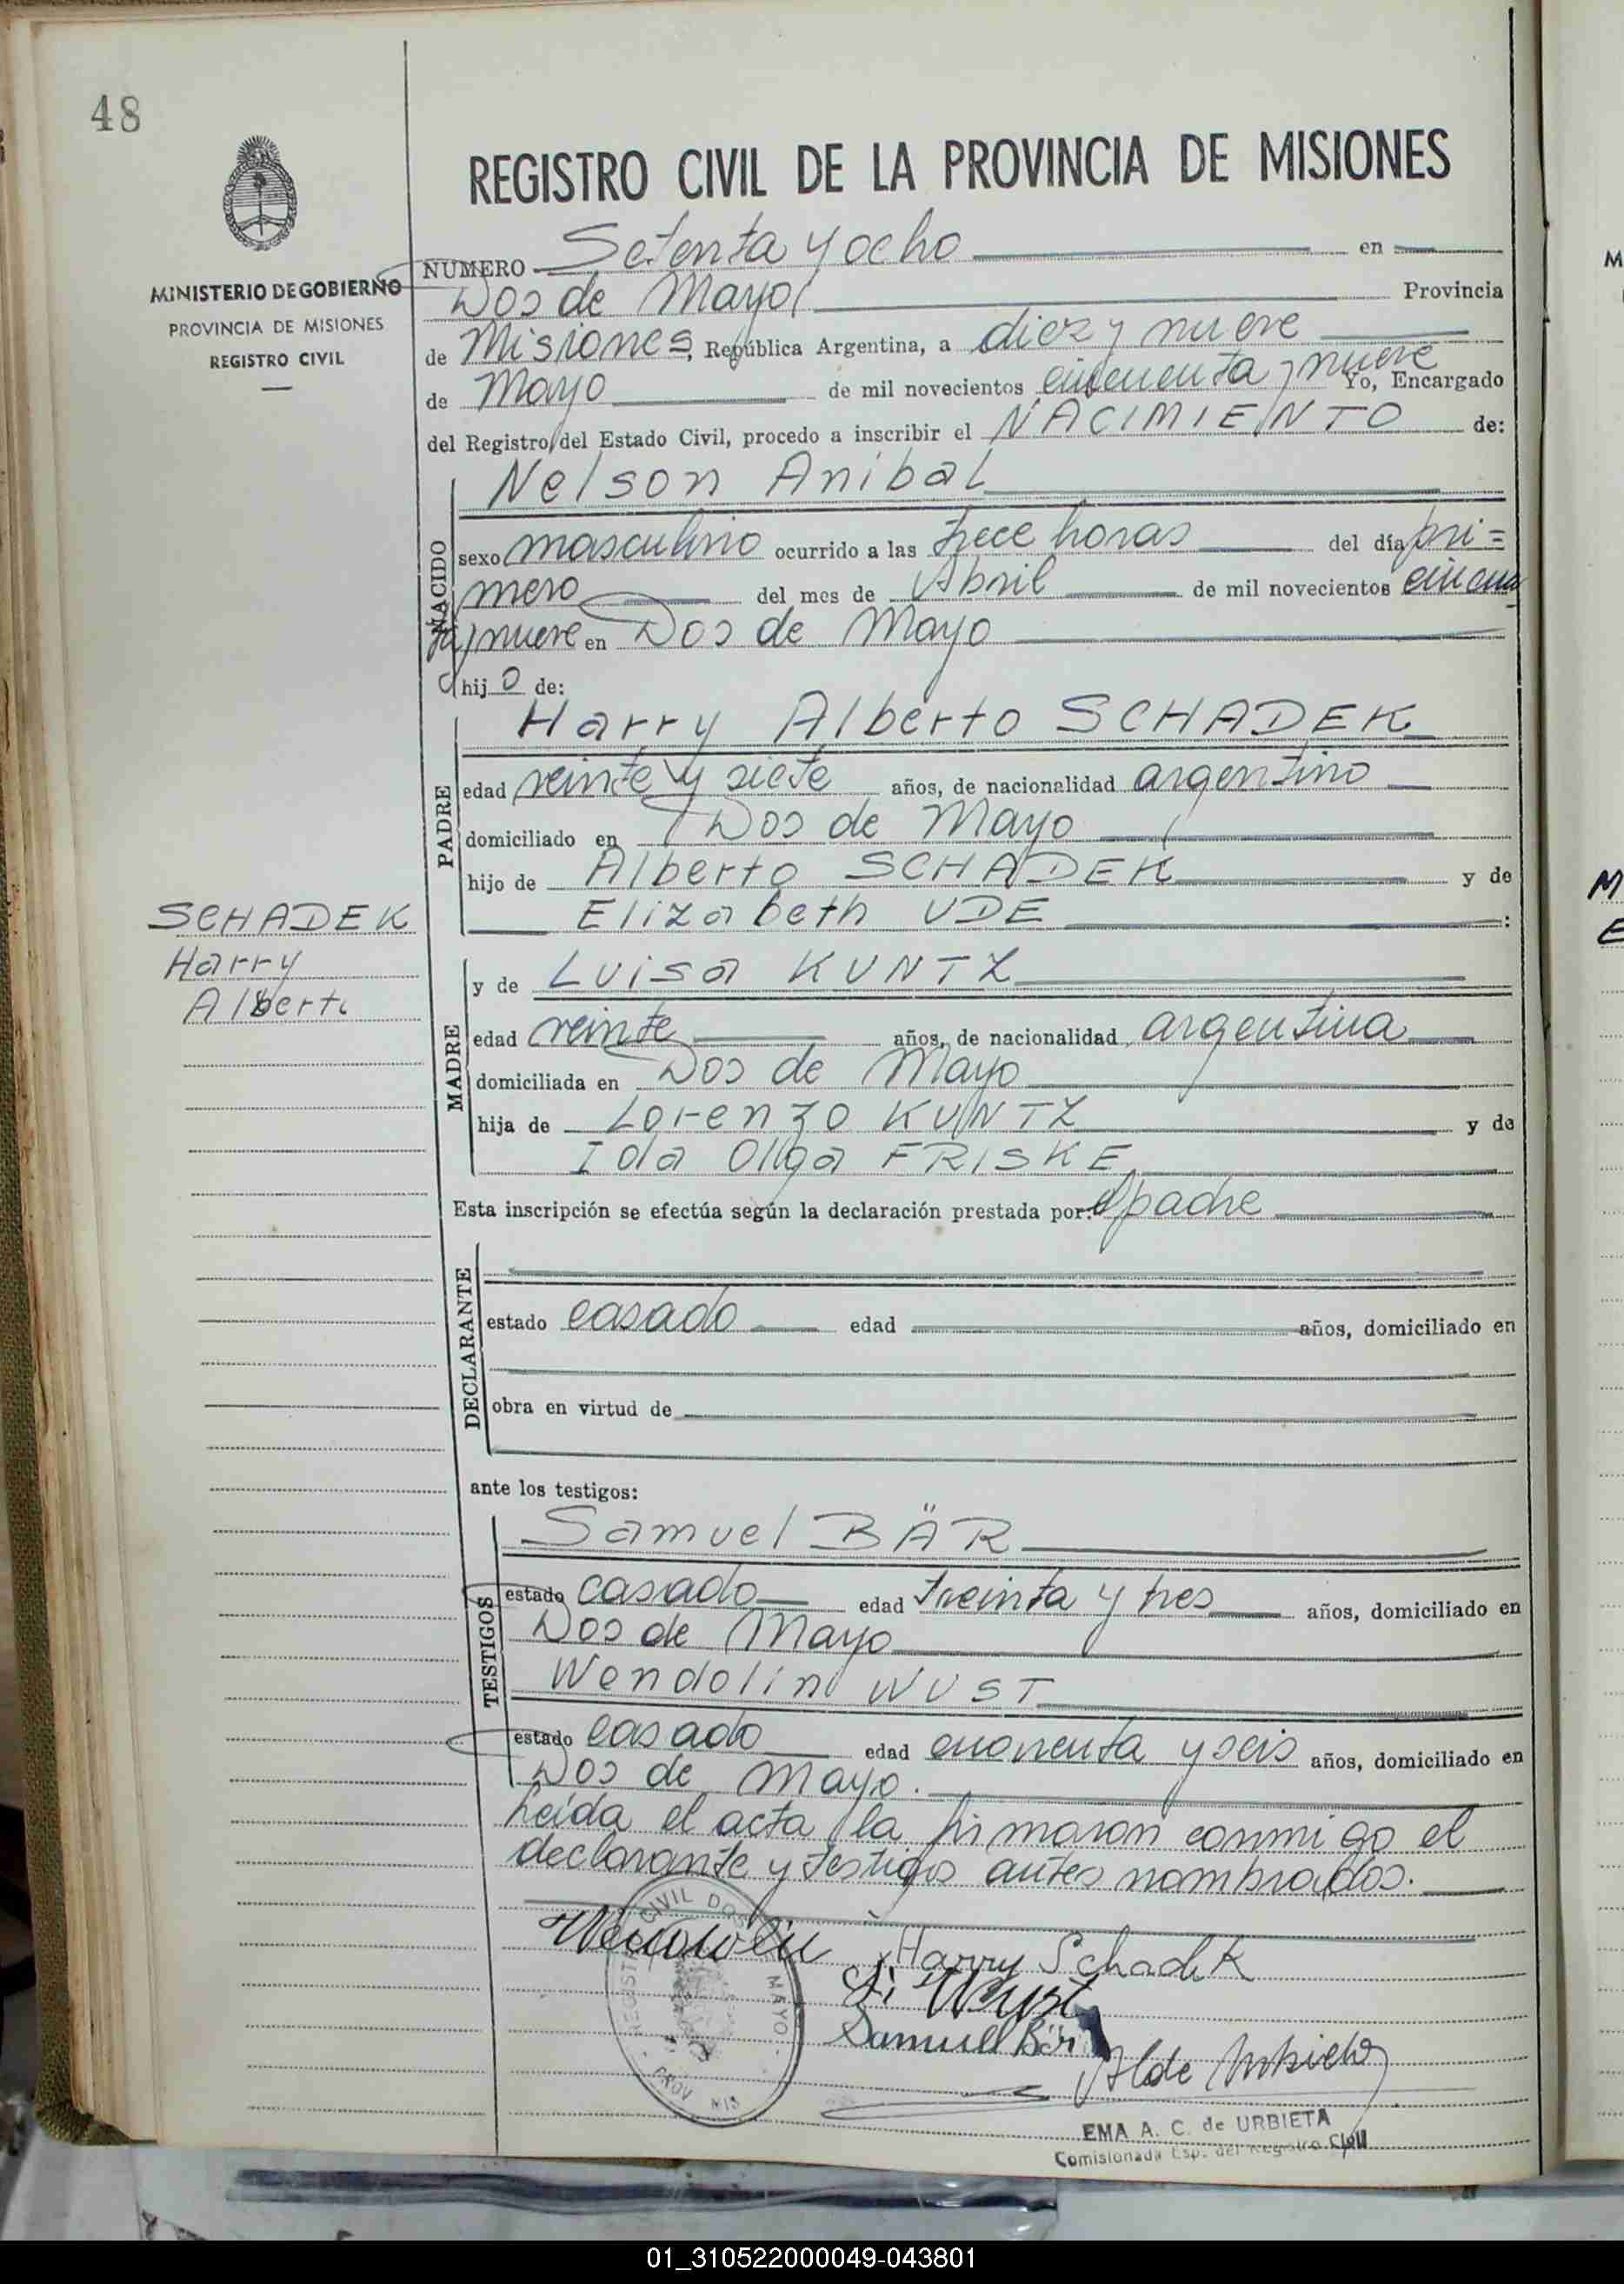 48
MINISTERIO DE GOBIERNO
PROVINCIA DE MISIONES
REGISTRO CIVIL
REGISTRO CIVIL DE LA PROVINCIA DE MISIONES
NUMERO Setenta y ocho en
Dos de Mayo Provincia
de Misiones, República Argentina, a diez y nueve
de Mayo de mil novecientos cincuenta y nueve Yo, Encargado
del Registro del Estado Civil, procedo a inscribir el NACIMIENTO de:
NACIDO
Nelson Anibal
sexo masculino ocurrido a las trece horas del día pri=
mero del mes de Abril de mil novecientos cincuen
ta y nueve en Dos de Mayo
hijo de:
PADRE
Harry Alberto SCHADEK
edad veinte y siete años, de nacionalidad argentino
domiciliado en Dos de Mayo
hijo de Alberto SCHADEK y de
Elizabeth UDE :
SCHADEK
Harry
Alberto
MADRE
y de Luisa KUNTZ
edad veinte años, de nacionalidad argentina
domiciliada en Dos de Mayo
hija de Lorenzo KUNTZ y de
Ida Olga FRISKE
Esta inscripción se efectúa según la declaración prestada por: el padre
DECLARANTE
estado casado edad años, domiciliado en
obra en virtud de
ante los testigos:
TESTIGOS
Samuel BÄR
estado casado edad treinta y tres años, domiciliado en
Dos de Mayo
Wendolin WUST
estado casado edad cuarenta y seis años, domiciliado en
Dos de Mayo.
Leida el acta la firmaron conmigo el
declarante y testigos antes nombrados.
Wendolin
Harry Schadek
Wust
Samuel Bär
REGISTRO CIVIL DOS MAYO PROV MIS
EMA A. C. de URBIETA
Comisionada Esp. del Registro Civil
01_310522000049-043801